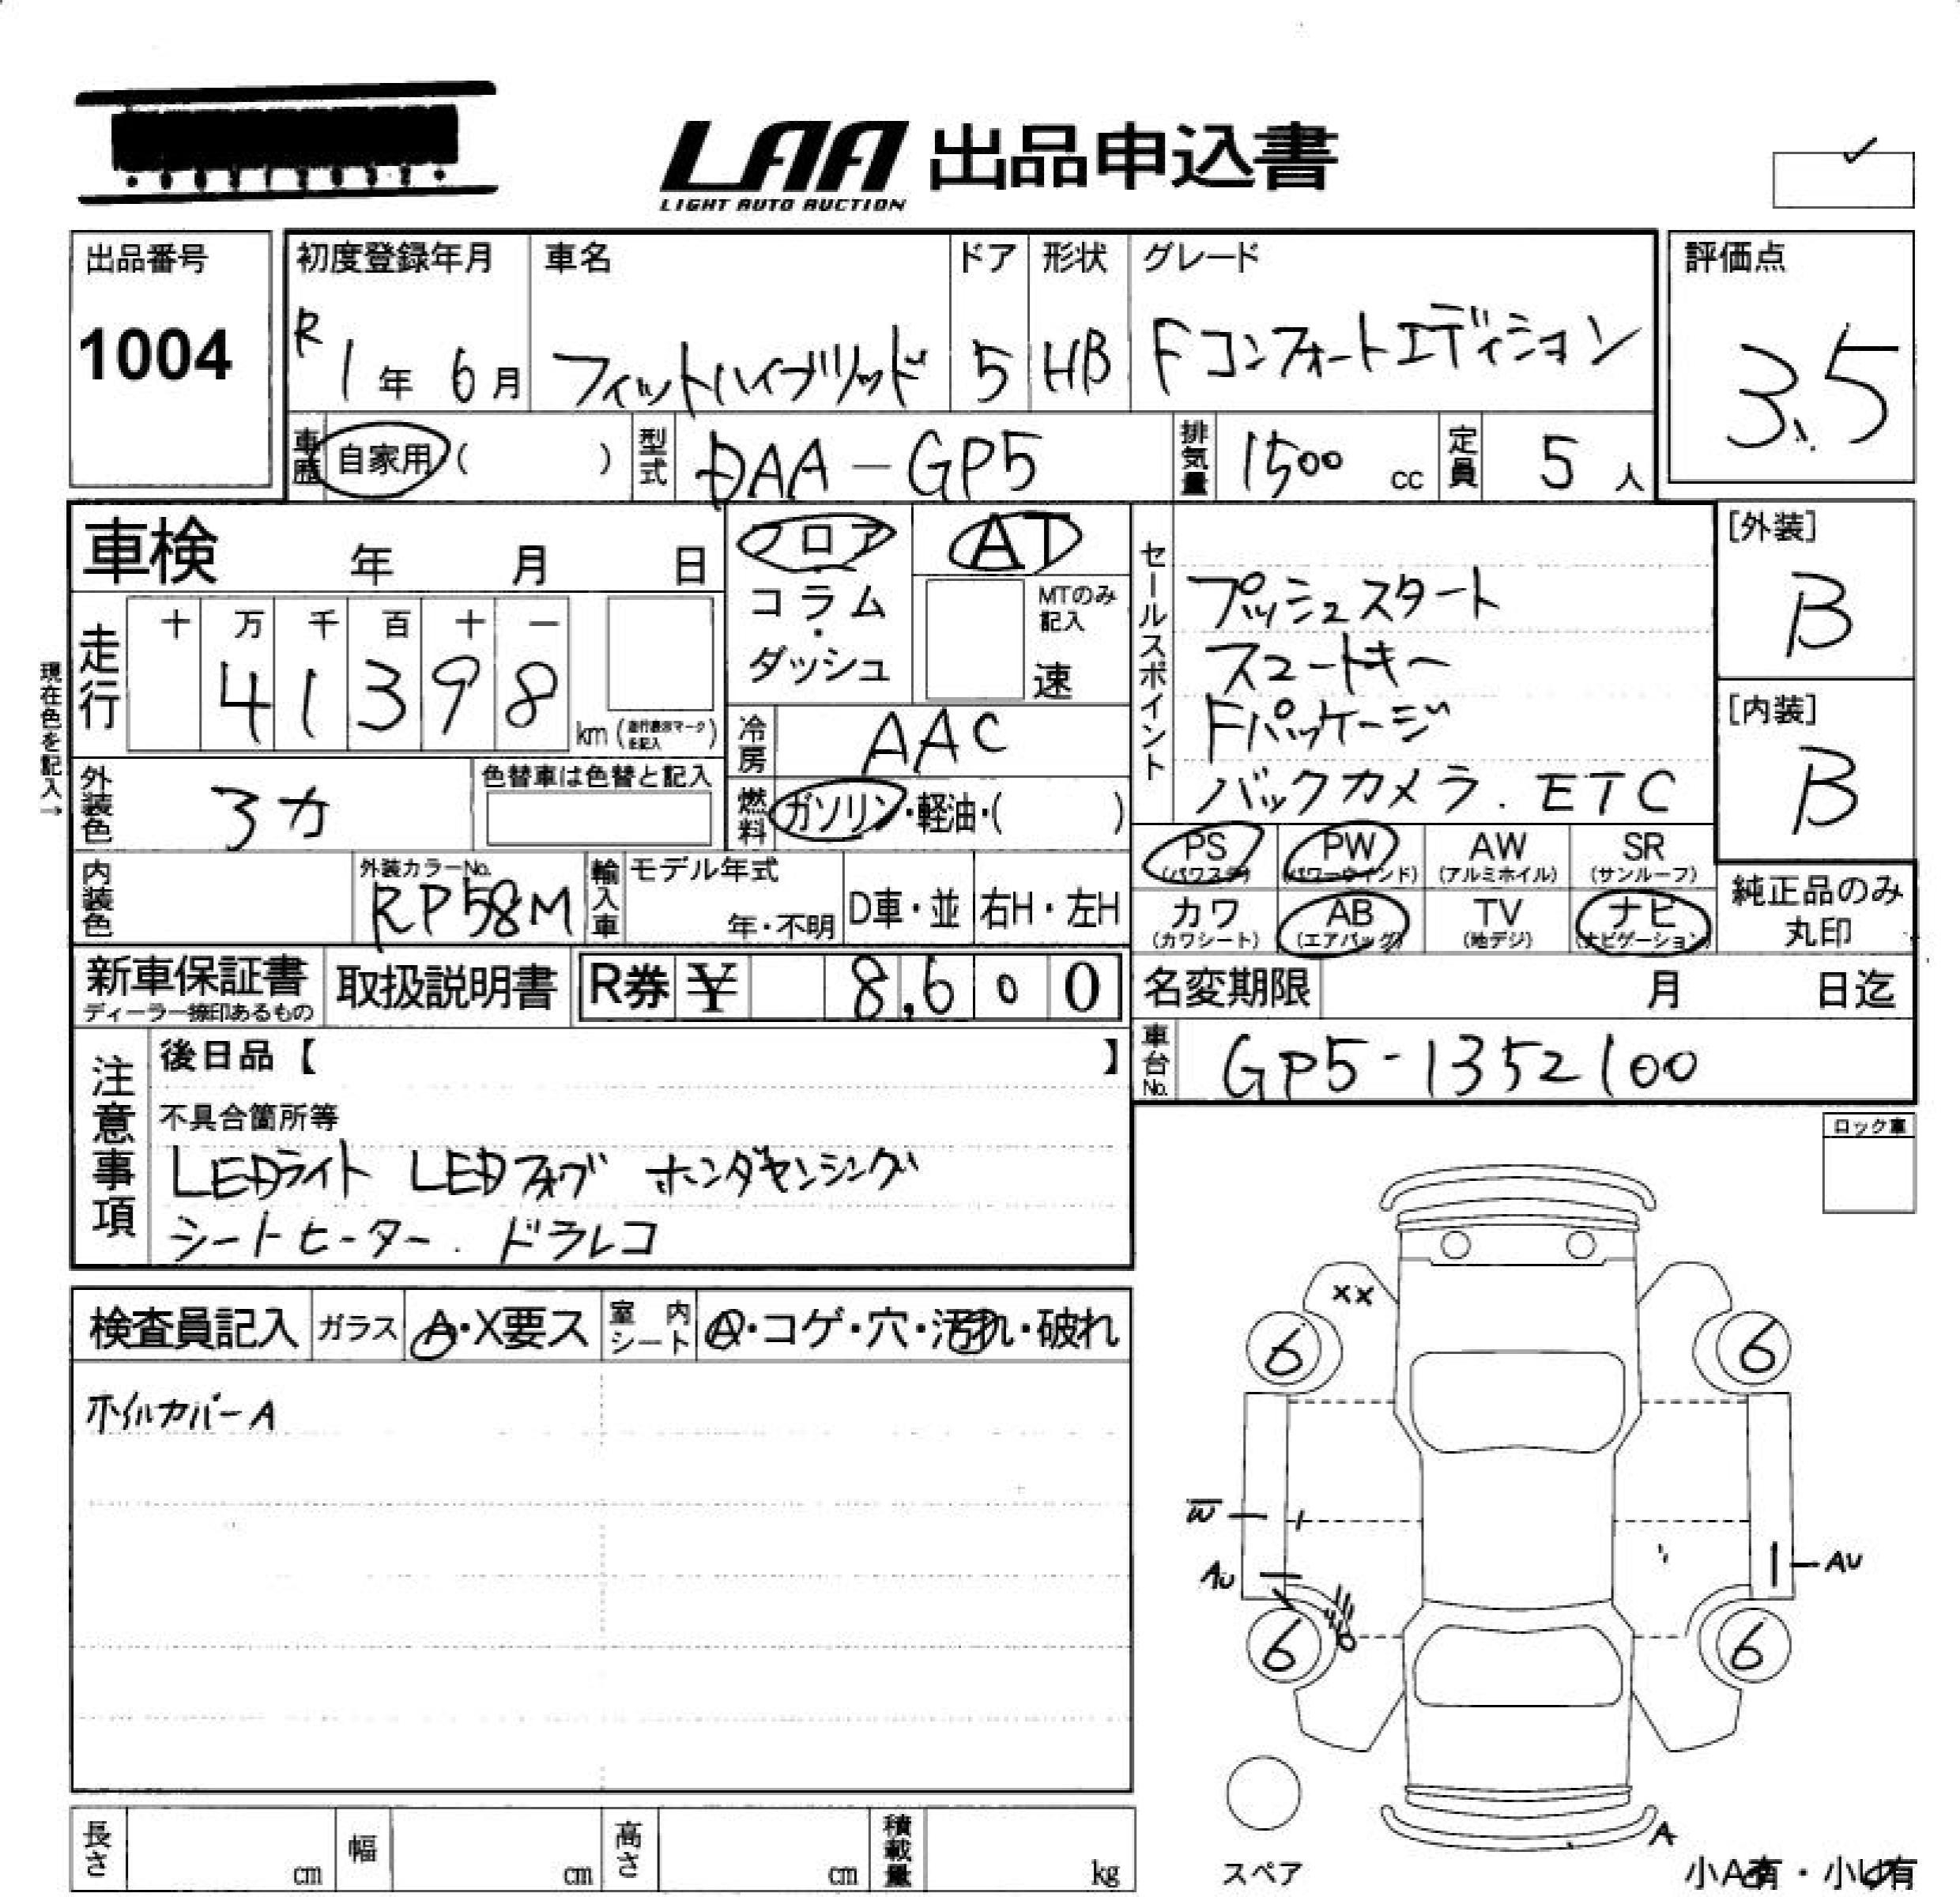 LAA 出品申込書
LIGHT AUTO AUCTION
出品番号
1004
初度登録年月
R 1年 6月
車名
フィットハイブリッド
ドア
5
形状
HB
グレード
Fコンフォートエディション
評価点
3.5
車歴 自家用 ( )
型式 DAA-GP5
排気量 1500 cc
定員 5 人
車検 年 月 日
現在色を記入→
走行 十 万 千 百 十 一
4 1 3 9 8
km (走行表示マークを記入)
フロア
コラム
・
ダッシュ
AT
MTのみ記入
速
冷房 AAC
燃料 ガソリン・軽油・( )
セールスポイント
プッシュスタート
スマートキー
Fパッケージ
バックカメラ.ETC
[外装]
B
[内装]
B
外装色 3カ
色替車は色替と記入
内装色
外装カラーNo.
RP58M
輸入車 モデル年式
年・不明
D車・並
右H・左H
PS (パワステ)
PW (パワーウインド)
AW (アルミホイル)
SR (サンルーフ)
カワ (カワシート)
AB (エアバッグ)
TV (地デジ)
ナビ (ナビゲーション)
純正品のみ
丸印
新車保証書
ディーラー捺印あるもの
取扱説明書
R券 ¥ 8,600
名変期限 月 日迄
車台No. GP5-1352100
注意事項
後日品【 】
不具合箇所等
LEDライト LEDフォグ ホンダセンシング
シートヒーター. ドラレコ
ロック車
検査員記入
ガラス A・X要ス
室内シート A・コゲ・穴・汚れ・破れ
ホイルカバーA
XX
6
6
W
AU
AU
6
6
A
スペア
小A有・小U有
長さ cm
幅 cm
高さ cm
積載量 kg